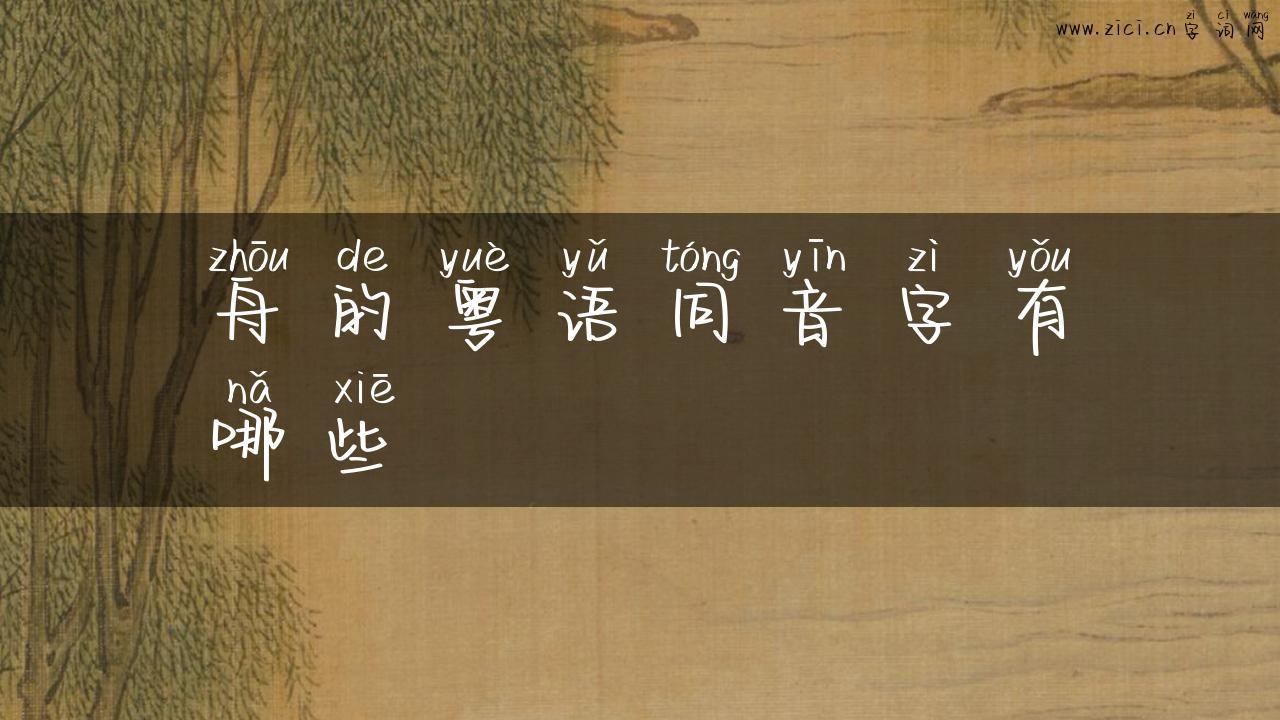 zì cí wǎng
www.zici.cn 字词网
zhōu de yuè yǔ tóng yīn zì yǒu
舟的粤语同音字有
nǎ xiē
哪些